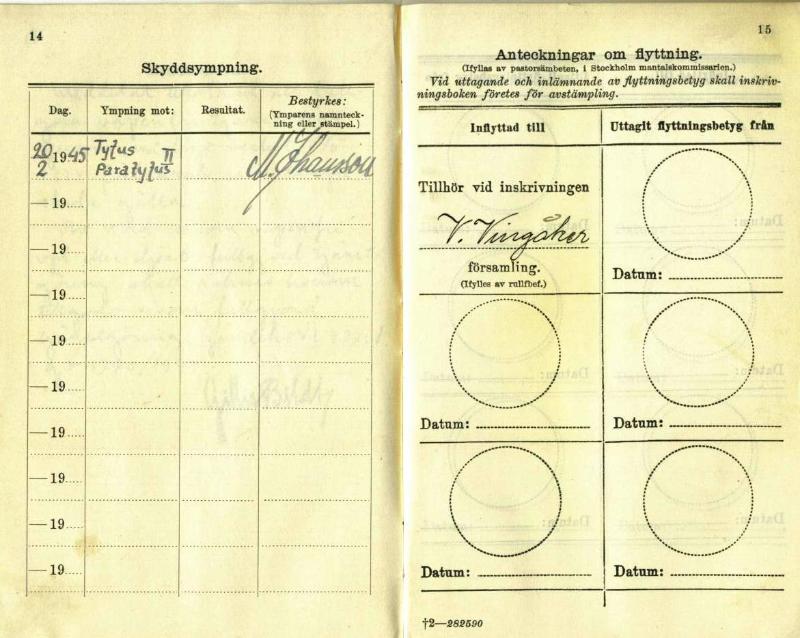 14
Skyddsympning.
Dag. Ympning mot: Resultat. Bestyrkes:
(Ymparens namnteck-
ning eller stämpel.)
20/2 1945 Tyfus II
Paratyfus M. Johansson
—19
—19
—19
—19
—19
—19
—19
—19
—19
15
Anteckningar om flyttning.
(Ifyllas av pastorsämbeten, i Stockholm mantalskommissarien.)
Vid uttagande och inlämnande av flyttningsbetyg skall inskriv-
ningsboken företes för avstämpling.
Inflyttad till Uttagit flyttningsbetyg från
Tillhör vid inskrivningen
V. Vingåker
församling.
(Ifylles av rullfbef.)
Datum:
Datum: Datum:
Datum: Datum:
†2—282590